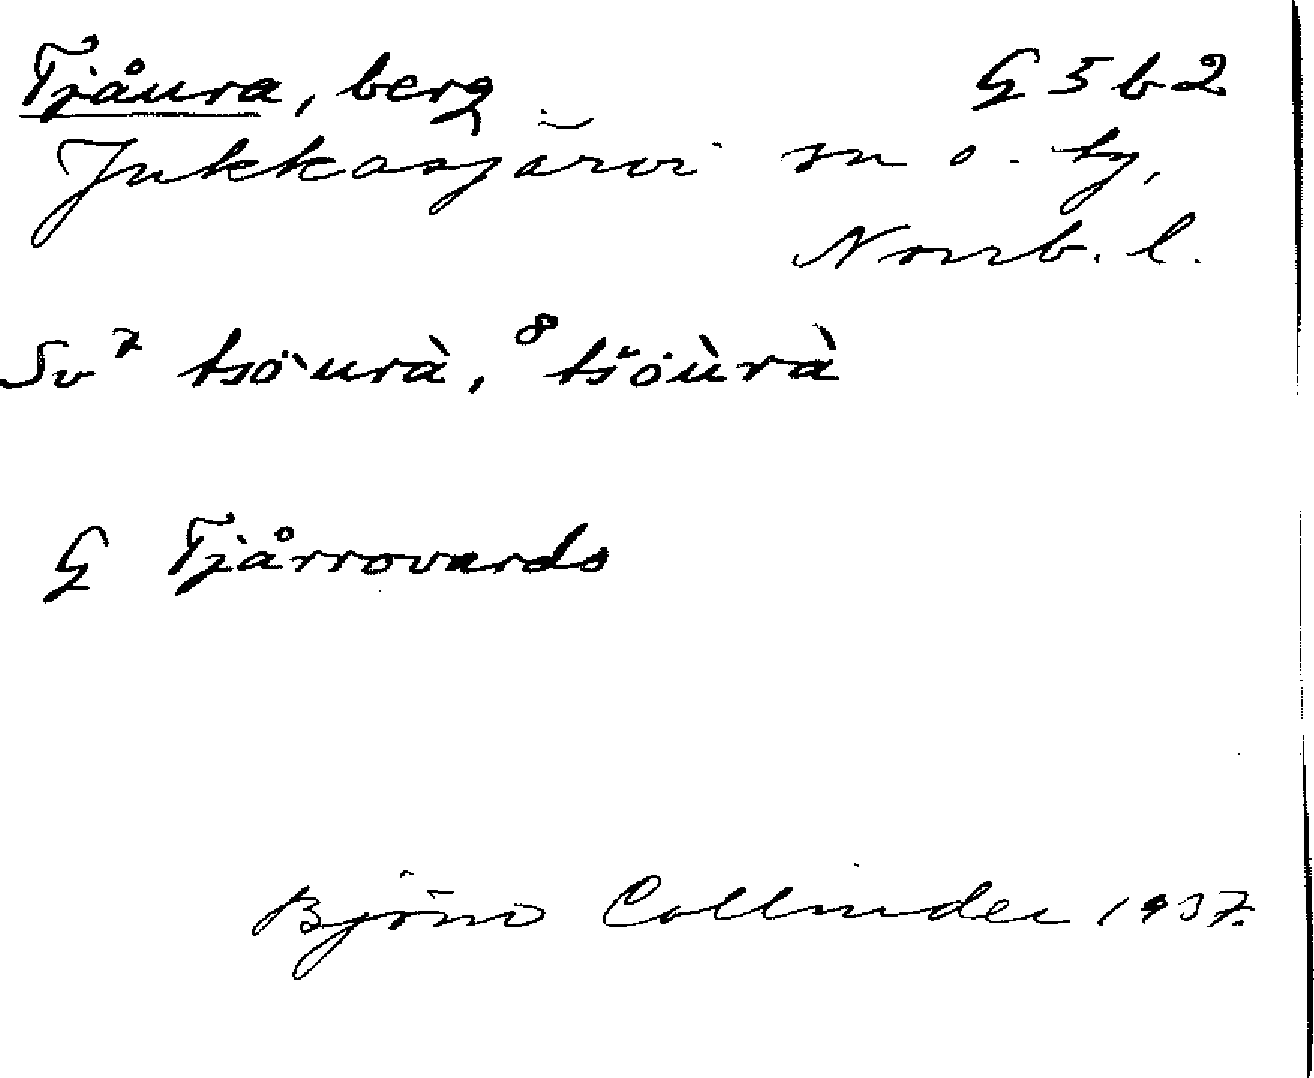 Tjåura, berg G 5 b 2
Jukkasjärvi sn o. ty,
Norrb. l.
Sv 7 tsò̀urà, 8 tšòùrà
G Tjårrovardo
Björn Collinder 1937.